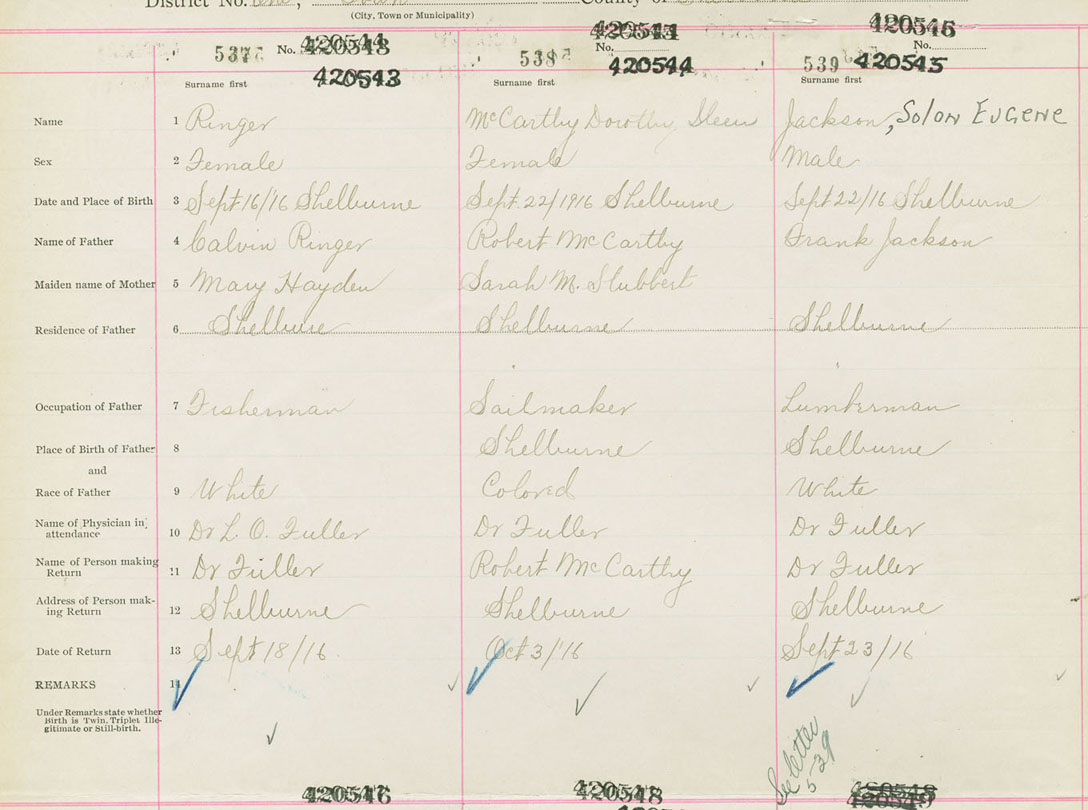 District No.
County of
(City, Town or Municipality)
537 No. 420543
538 No.
539 No. 420545
420543 420544 420545
Surname first Surname first Surname first
Name 1 Ringer McCarthy Dorothy Jackson, Solon Eugene
Sex 2 Female Female Male
Date and Place of Birth 3 Sept 16/16 Shelburne Sept 22/1916 Shelburne Sept 22/16 Shelburne
Name of Father 4 Calvin Ringer Robert McCarthy Frank Jackson
Maiden name of Mother 5 Mary Hayden Sarah M.
Residence of Father 6 Shelburne Shelburne
Occupation of Father 7 Fisherman Sailmaker Lumberman
Place of Birth of Father 8 Shelburne Shelburne
and
Race of Father 9 White Colored White
Name of Physician in attendance 10 Dr L. O. Fuller Dr Fuller Dr Fuller
Name of Person making Return 11 Dr Fuller Robert McCarthy Dr Fuller
Address of Person making Return 12 Shelburne Shelburne Shelburne
Date of Return 13 Sept 18/16. Oct 3/'16 Sept 23/16
REMARKS 14
Under Remarks state whether
Birth is Twin, Triplet Ille-
gitimate or Still-birth.
See letter
5-39